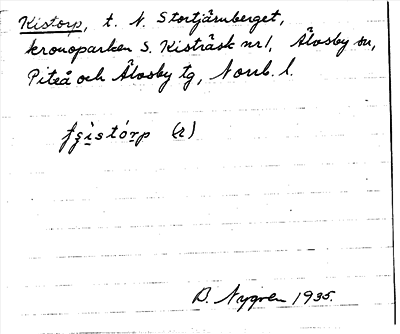 Kistorp, t. N. Stortjärnberget,
kronoparken S. Kisträsk nr 1, Älvsby sn,
Piteå och Älvsby tg, Norrb. l.
(r)
D. Nygren 1935.